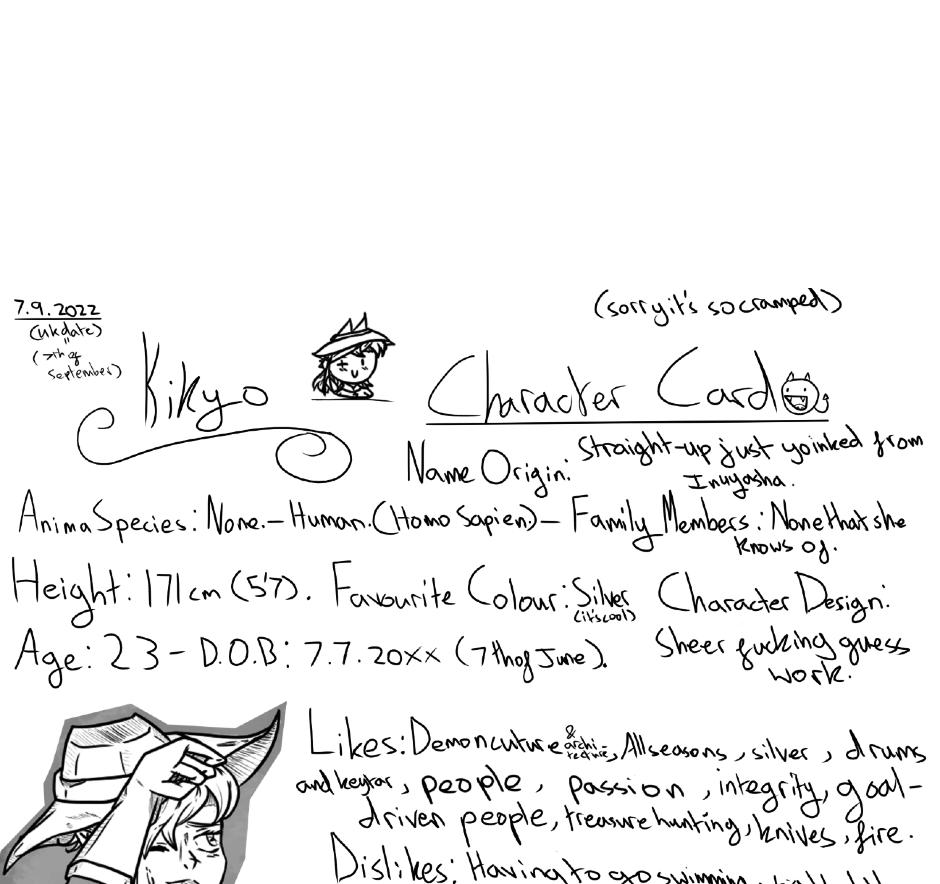 7.9.2022
(uk date)
(7th of
september)
(sorry it's so cramped)
Kikyo
Character Card
Name Origin: Straight-up just yoinked from
Inuyasha.
Anima Species: None. – Human. (Homo Sapien.) – Family Members: None that she
knows of.
Height: 171cm (5'7). Favourite Colour: Silver
(it's cool)
Character Design:
Sheer fucking guess
work.
Age: 23 – D.O.B: 7.7.20xx (7th of June).
Likes: Demon cuture & archi-tecture, All seasons, silver, drums
and keytar, people, passion, integrity, goal-
driven people, treasure hunting, knives, fire.
Dislikes: Having to go swimming,